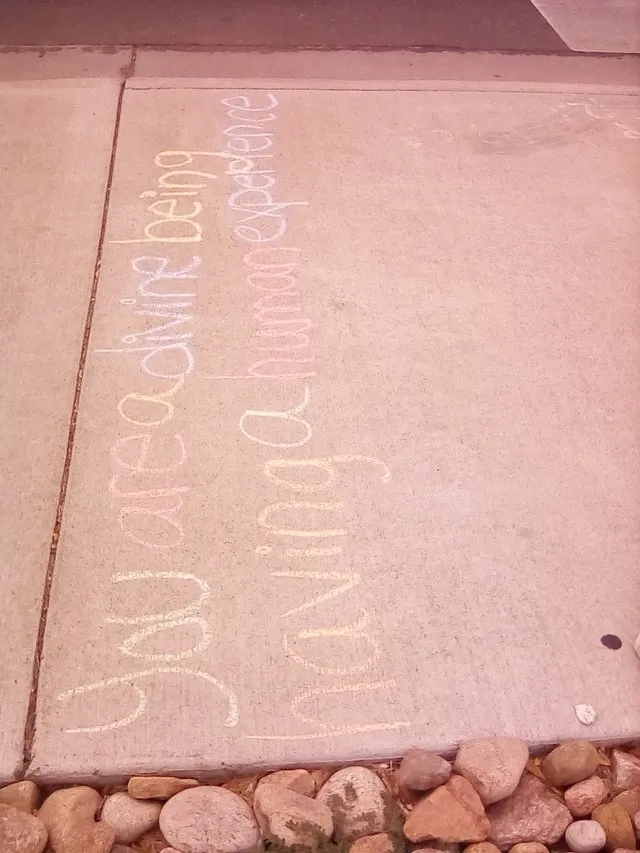 you are a divine being
having a human experience